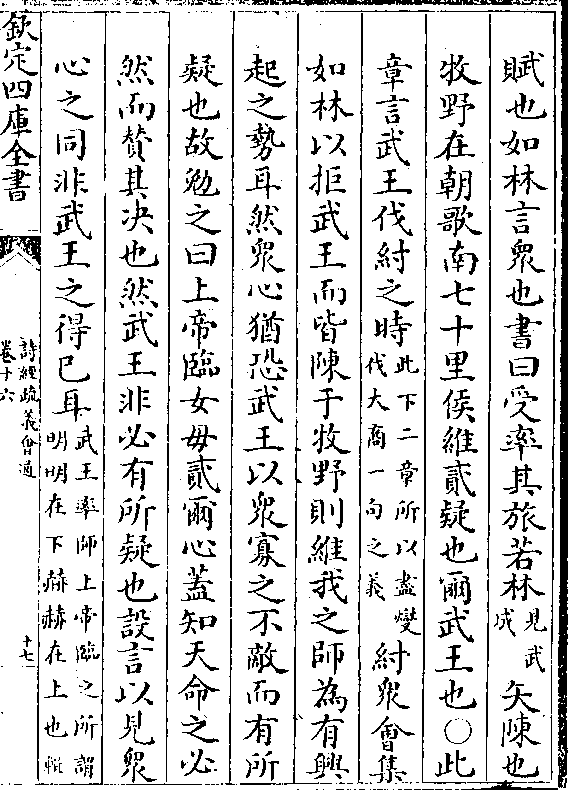 賦也如林言衆也書曰受率其旅若林見武成矢陳也
牧野在朝歌南七十里侯維貳疑也爾武王也○此
章言武王伐紂之時此下二章所以盡燮伐大商一句之義紂衆會集
如林以拒武王而皆陳于牧野則維我之師為有興
起之勢耳然衆心猶恐武王以衆寡之不敵而有所
疑也故勉之曰上帝臨女毋貳爾心蓋知天命之必
然而賛其决也然武王非必有所疑也設言以見衆
心之同非武王之得已耳武王率師上帝臨之所謂明明在下赫赫在上也輯
欽定四庫全書
詩經疏義會通
卷十六
十七